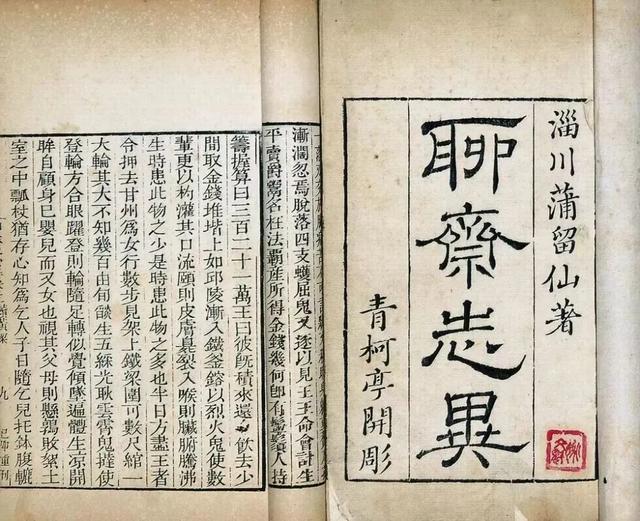 淄川蒲留仙著
聊齋志異
青柯亭開彫
忽焉脫落四支蠖屈鬼又逐以見王王命會計生
平賣爵鬻名枉法霸產所得金錢幾何即有人持
籌握算曰三百二十一萬王曰彼既積來還飲去少
間取金錢堆堦上如邱陵漸入鐵釜鎔以烈火鬼使數
輩更以杓灌其口流頤則皮膚臭裂入喉則臟腑騰沸
生時患此物之少是時患此物之多也半日方盡王者
令押去甘州爲女行數步見架上鐵梁圍可數尺綰一
大輪其大不知幾百由旬燄生五綵光耿雲霄鬼撻使
登輪方合眼躍登則輪隨足轉似覺傾墜遍體生涼開
眸自顧身已嬰兒而又女也視其父母則懸鶉敗絮土
室之中瓢杖猶存心知爲乞人子日隨乞兒托鉢腹轆
九